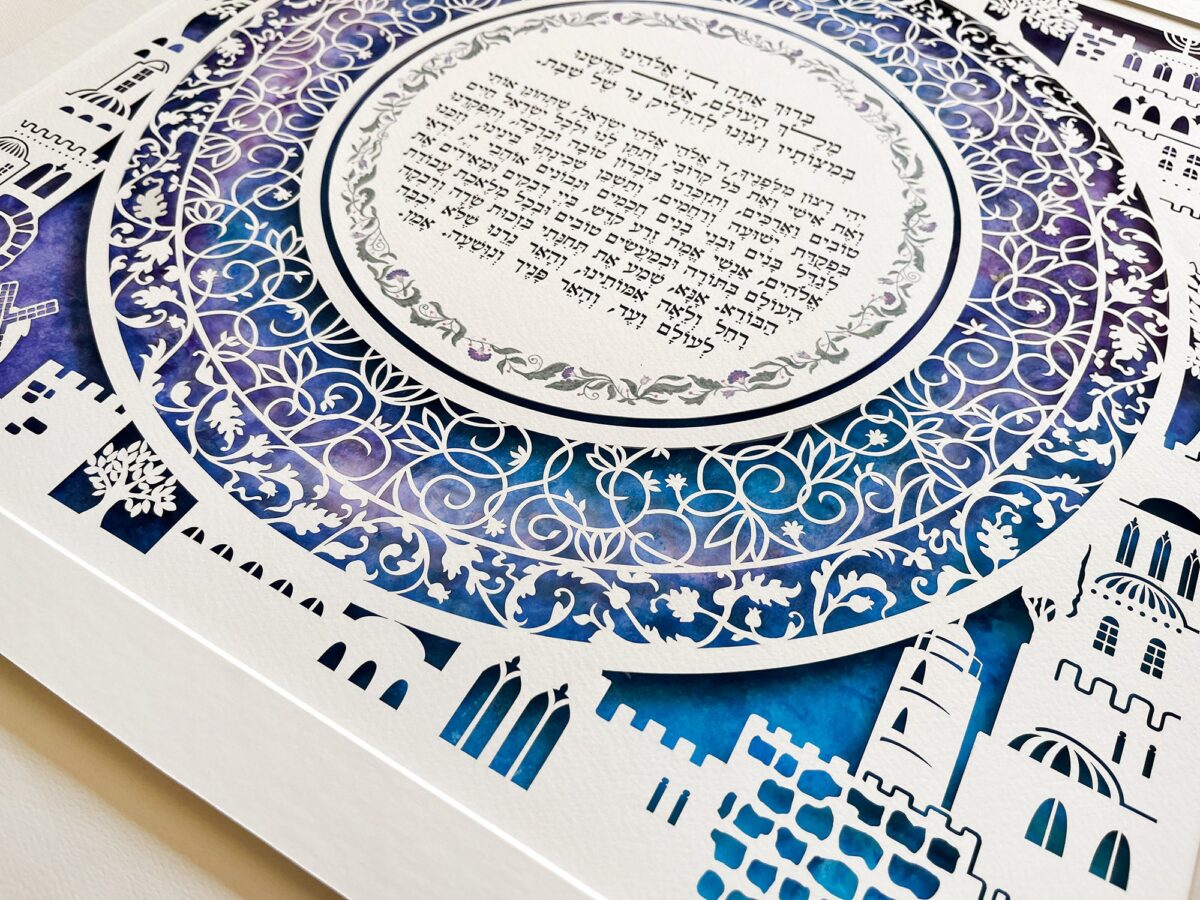 בָּרוּךְ אַתָּה ה׳ אֱלֹהֵינוּ
מֶלֶךְ הָעוֹלָם, אֲשֶׁר קִדְּשָׁנוּ
בְּמִצוֹתָיו וְצִוָּנוּ לְהַדְלִיק נֵר שֶׁל שַׁבָּת.
יְהִי רָצוֹן מִלְּפָנֶיךָ, ה׳ אֱלֹהַי אֱלֹהֵי יִשְׂרָאֵל, שֶׁתְּחוֹנֵן אוֹתִי
וְאֶת אִישִׁי וְאֶת כָּל קְרוֹבַי, וְתִתֵּן לָנוּ וּלְכָל יִשְׂרָאֵל חַיִּים
טוֹבִים וַאֲרֻכִּים, וְתִזְכְּרֵנוּ בְּזִכְרוֹן טוֹבָה וּבְרָכָה, וְתִפְקְדֵנוּ
בִּפְקֻדַּת יְשׁוּעָה וְרַחֲמִים, וְתַשְׁכֵּן שְׁכִינָתְךָ בֵּינֵינוּ, וְזַכֵּנוּ
לְגַדֵּל בָּנִים וּבְנֵי בָנִים חֲכָמִים וּנְבוֹנִים אוֹהֲבֵי ה׳, יִרְאֵי
אֱלֹהִים, אַנְשֵׁי אֱמֶת זֶרַע קֹדֶשׁ, בַּה׳ דְּבֵקִים וּמְאִירִים אֶת
הָעוֹלָם בַּתּוֹרָה וּבְמַעֲשִׂים טוֹבִים וּבְכָל מְלֶאכֶת עֲבוֹדַת
הַבּוֹרֵא. אָנָּא, שְׁמַע אֶת תְּחִנָּתִי בִּזְכוּת שָׂרָה וְרִבְקָה
רָחֵל וְלֵאָה אִמּוֹתֵינוּ, וְהָאֵר נֵרֵנוּ שֶׁלֹּא יִכְבֶּה
לְעוֹלָם וָעֶד, וְהָאֵר פָּנֶיךָ וְנִוָּשֵׁעָה. אָמֵן.